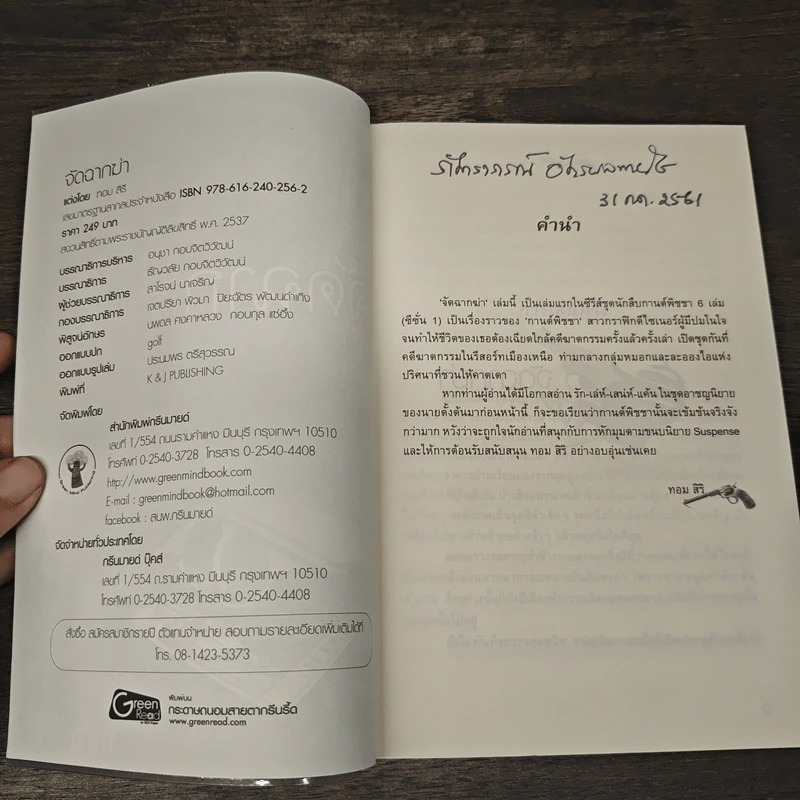 จัดฉากฆ่า
แต่งโดย ทอม สิริ
เลขมาตรฐานสากลประจำหนังสือ ISBN 978-616-240-256-2
ราคา 249 บาท
สงวนสิทธิ์ตามพระราชบัญญัติลิขสิทธิ์ พ.ศ. 2537
บรรณาธิการบริหาร อนุชา กอบจิตวิวัฒน์
บรรณาธิการ ธัญวลัย กอบจิตวิวัฒน์
ผู้ช่วยบรรณาธิการ สาโรจน์ นาเจริญ
กองบรรณาธิการ เจตปรียา ผิวมา ปิยะฉัตร พัฒนดำเกิง
พิสูจน์อักษร นพดล คงคาหลวง กอบกุล แซ่อึ้ง
ออกแบบปก golf
ออกแบบรูปเล่ม ประนมพร ตรีสุวรรณ
พิมพ์ที่ K & J PUBLISHING
จัดพิมพ์โดย
สำนักพิมพ์กรีนมายด์
เลขที่ 1/554 ถนนรามคำแหง มีนบุรี กรุงเทพฯ 10510
โทรศัพท์ 0-2540-3728 โทรสาร 0-2540-4408
http://www.greenmindbook.com
E-mail : greenmindbook@hotmail.com
facebook : สนพ.กรีนมายด์
จัดจำหน่ายทั่วประเทศโดย
กรีนมายด์ บุ๊คส์
เลขที่ 1/554 ถ.รามคำแหง มีนบุรี กรุงเทพฯ 10510
โทรศัพท์ 0-2540-3728 โทรสาร 0-2540-4408
สั่งซื้อ สมัครสมาชิกรายปี ตัวแทนจำหน่าย สอบถามรายละเอียดเพิ่มเติมได้ที่
โทร. 08-1423-5373
Green Read
พิมพ์บน
กระดาษถนอมสายตากรีนรี้ด
www.greenread.com
31 กค. 2561
คำนำ
'จัดฉากฆ่า' เล่มนี้ เป็นเล่มแรกในซีรีส์ชุดนักสืบกานต์พิชชา 6 เล่ม
(ซีซั่น 1) เป็นเรื่องราวของ 'กานต์พิชชา' สาวกราฟิกดีไซเนอร์ผู้มีปมในใจ
จนทำให้ชีวิตของเธอต้องเฉียดใกล้คดีฆาตกรรมครั้งแล้วครั้งเล่า เปิดชุดกันที่
คดีฆาตกรรมในรีสอร์ทเมืองเหนือ ท่ามกลางกลุ่มหมอกและละอองไอแห่ง
ปริศนาที่ชวนให้คาดเดา
หากท่านผู้อ่านได้มีโอกาสอ่าน รัก-เล่ห์-เสน่ห์-แค้น ในชุดอาชญนิยาย
ของนายตั้งต้นมาก่อนหน้านี้ ก็จะขอเรียนว่ากานต์พิชชานั้นจะเข้มข้นจริงจัง
กว่ามาก หวังว่าจะถูกใจนักอ่านที่สนุกกับการหักมุมตามขนบนิยาย Suspense
และให้การต้อนรับสนับสนุน ทอม สิริ อย่างอบอุ่นเช่นเคย
ทอม สิริ